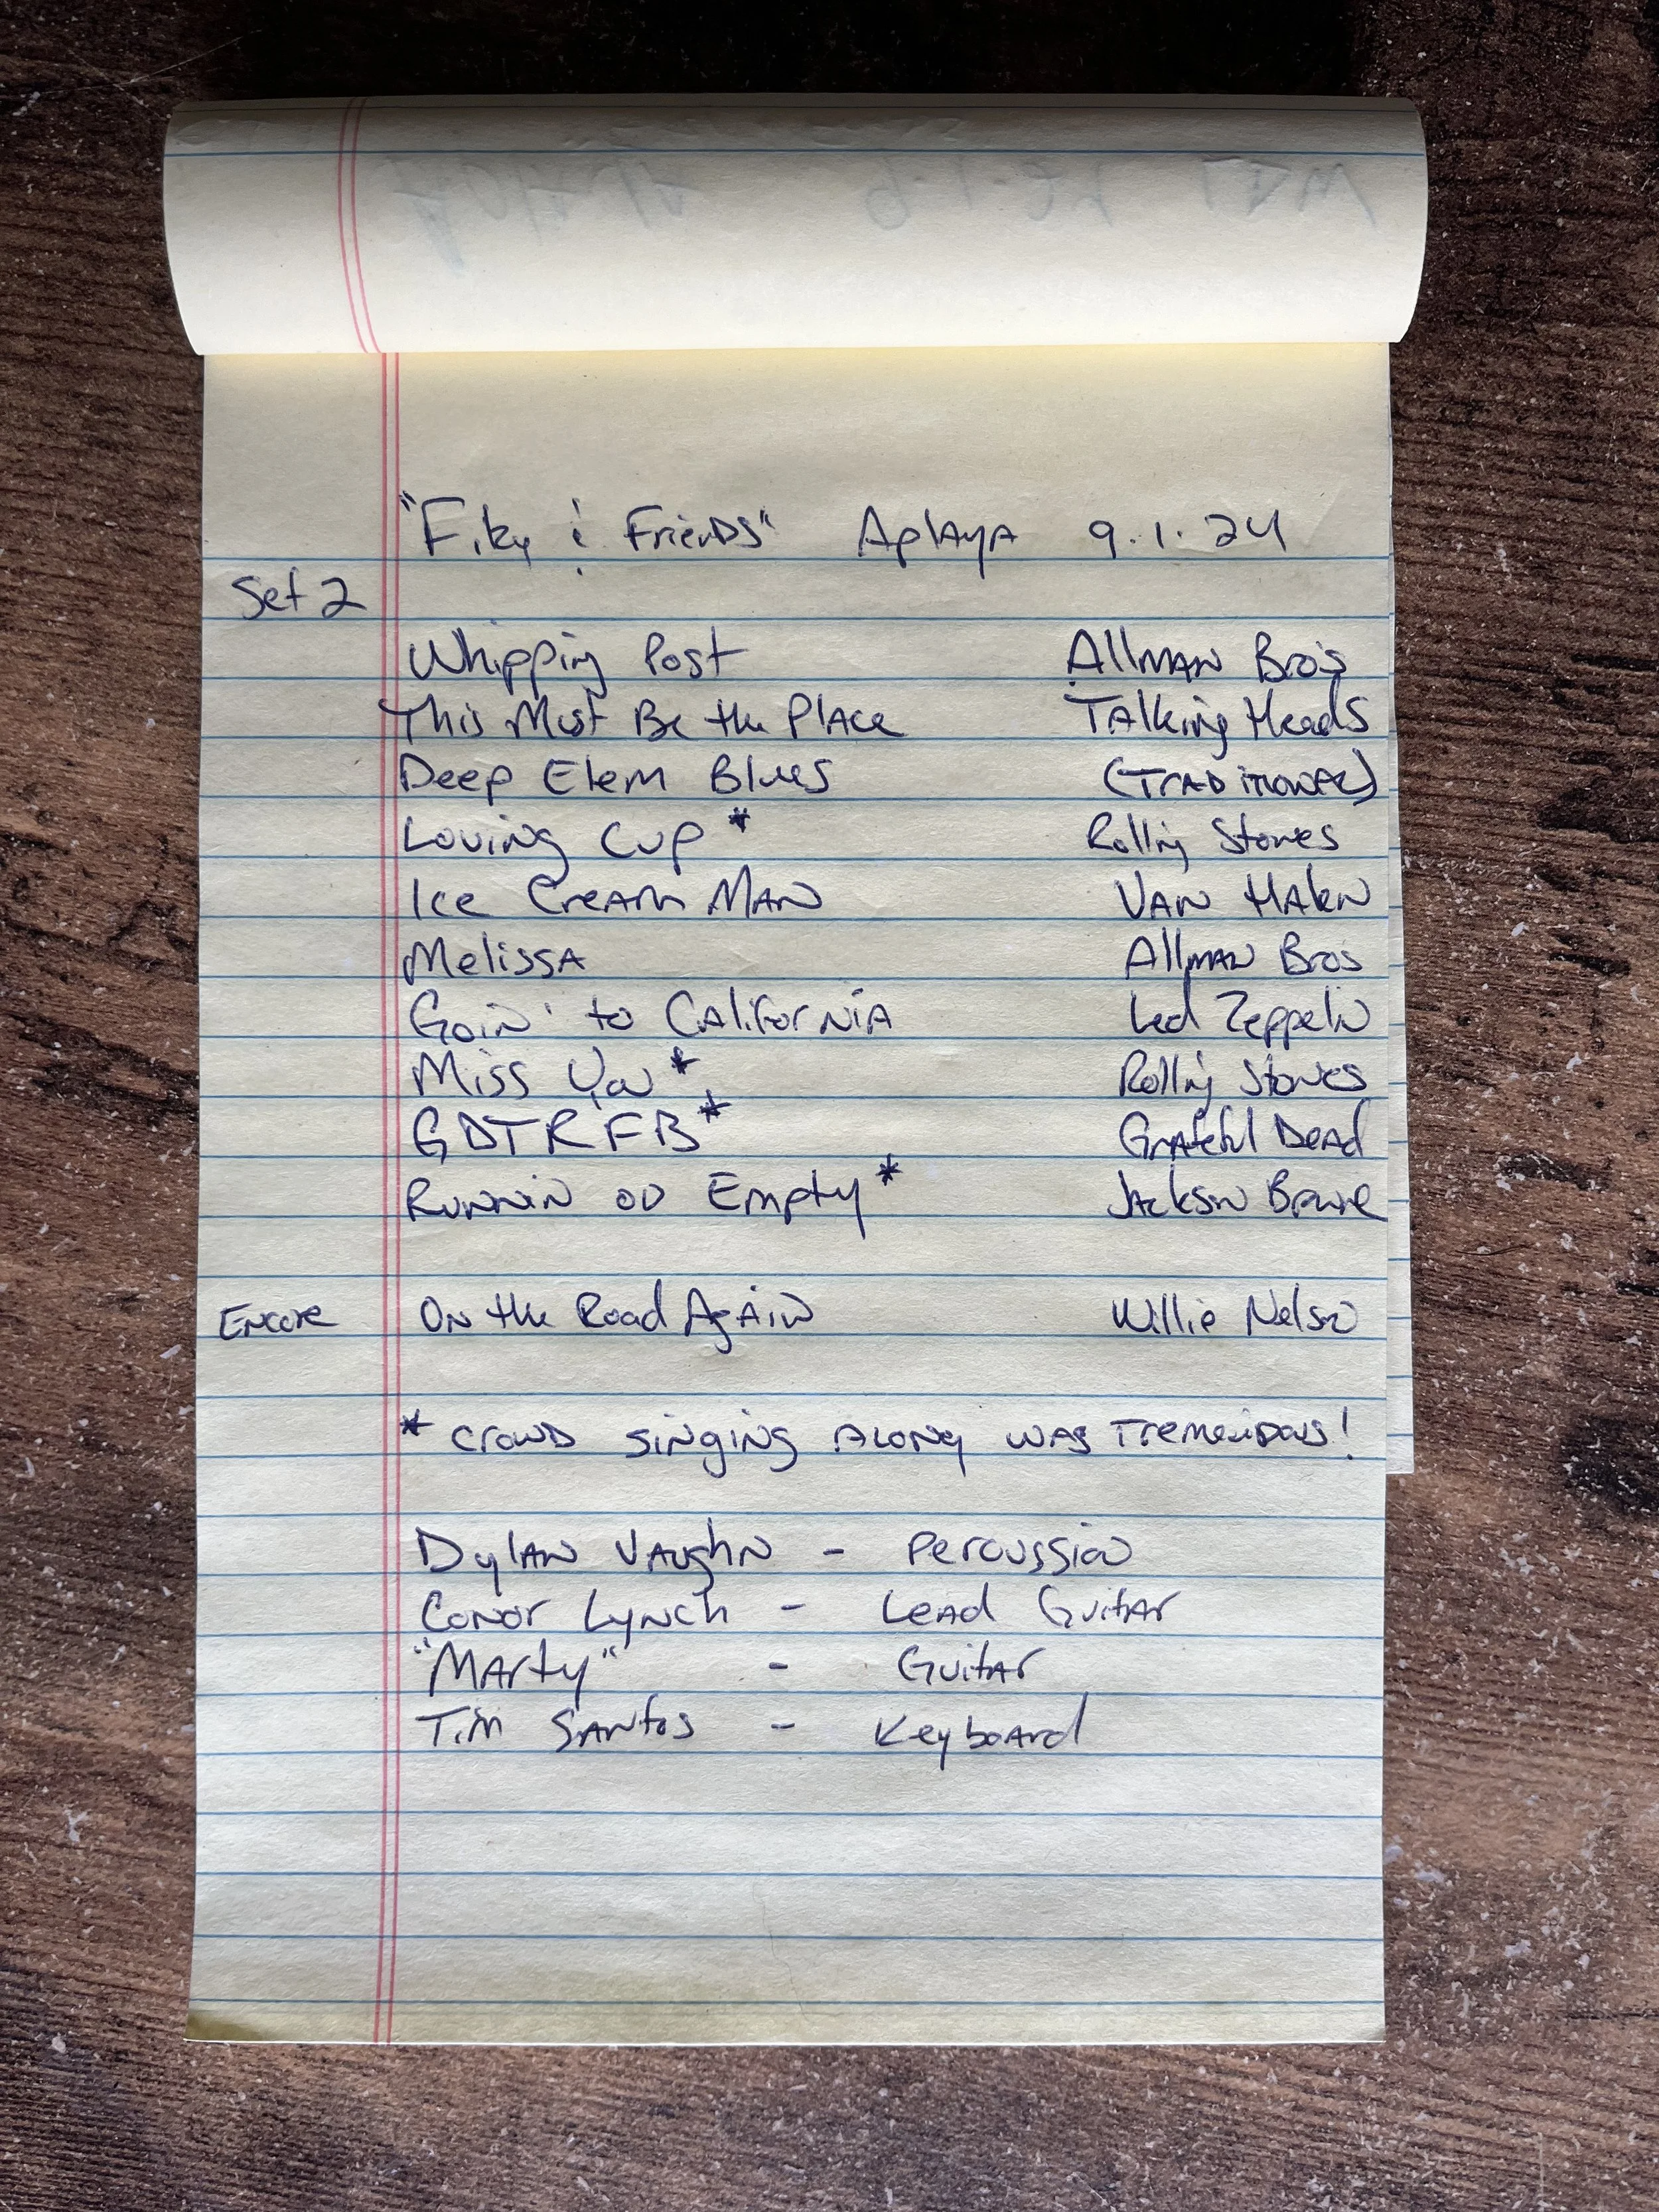 "Fiky & Friends" Aplaya 9.1.24
Set 2
Whipping Post Allman Bros
This Must Be the Place Talking Heads
Deep Elem Blues (Traditional)
Loving Cup * Rolling Stones
Ice Cream Man Van Halen
Melissa Allman Bros
Goin' to California Led Zeppelin
Miss You * Rolling Stones
GDTRFB * Grateful Dead
Runnin on Empty * Jackson Browne
Encore On the Road Again Willie Nelson
* Crowd singing along was tremendous!
Dylan Vaughn - Percussion
Conor Lynch - Lead Guitar
"Marty" - Guitar
Tim Santos - Keyboard